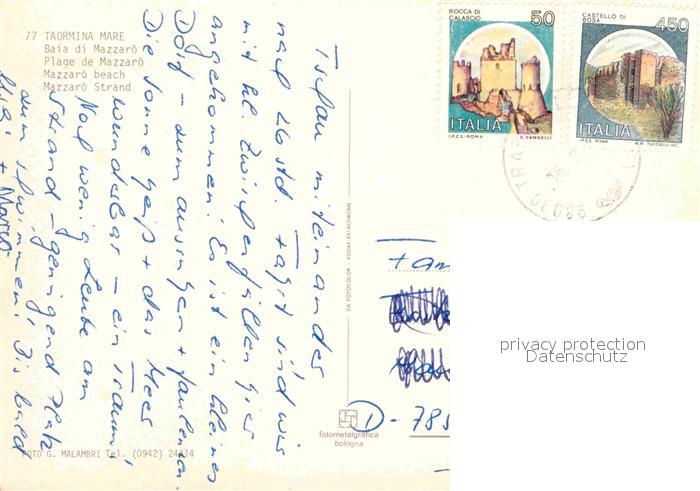 77 TAORMINA MARE
Baia di Mazzarò
Plage de Mazzarò
Mazzarò beach
Mazzarò Strand
Tschau miteinander
nach 26 std. Fahrt sind wir
mit kl. Zwischenfällen hier
angekommen. Es ist ein kleines
Dorf - zum ausruhen + faulenzen.
Die Sonne heiß + das Meer
wunderbar - ein Traum!
Noch wenig Leute am
Strand - genügend Platz
zum schwimmen. Bis bald
+ Marco
FOTO G. MALAMBRI Tel. (0942) 24414
DA FOTOCOLOR - KODAK EKTACHROME
fotometalgrafica
bologna
ROCCA DI
CALASCIO
50
ITALIA
I.P.Z.S.-ROMA E. VANGELLI
CASTELLO DI
BOSA
450
ITALIA
I.P.Z.S. ROMA M.M. TUCCELLI INC.
98039
Fam
D-785
privacy protection
Datenschutz